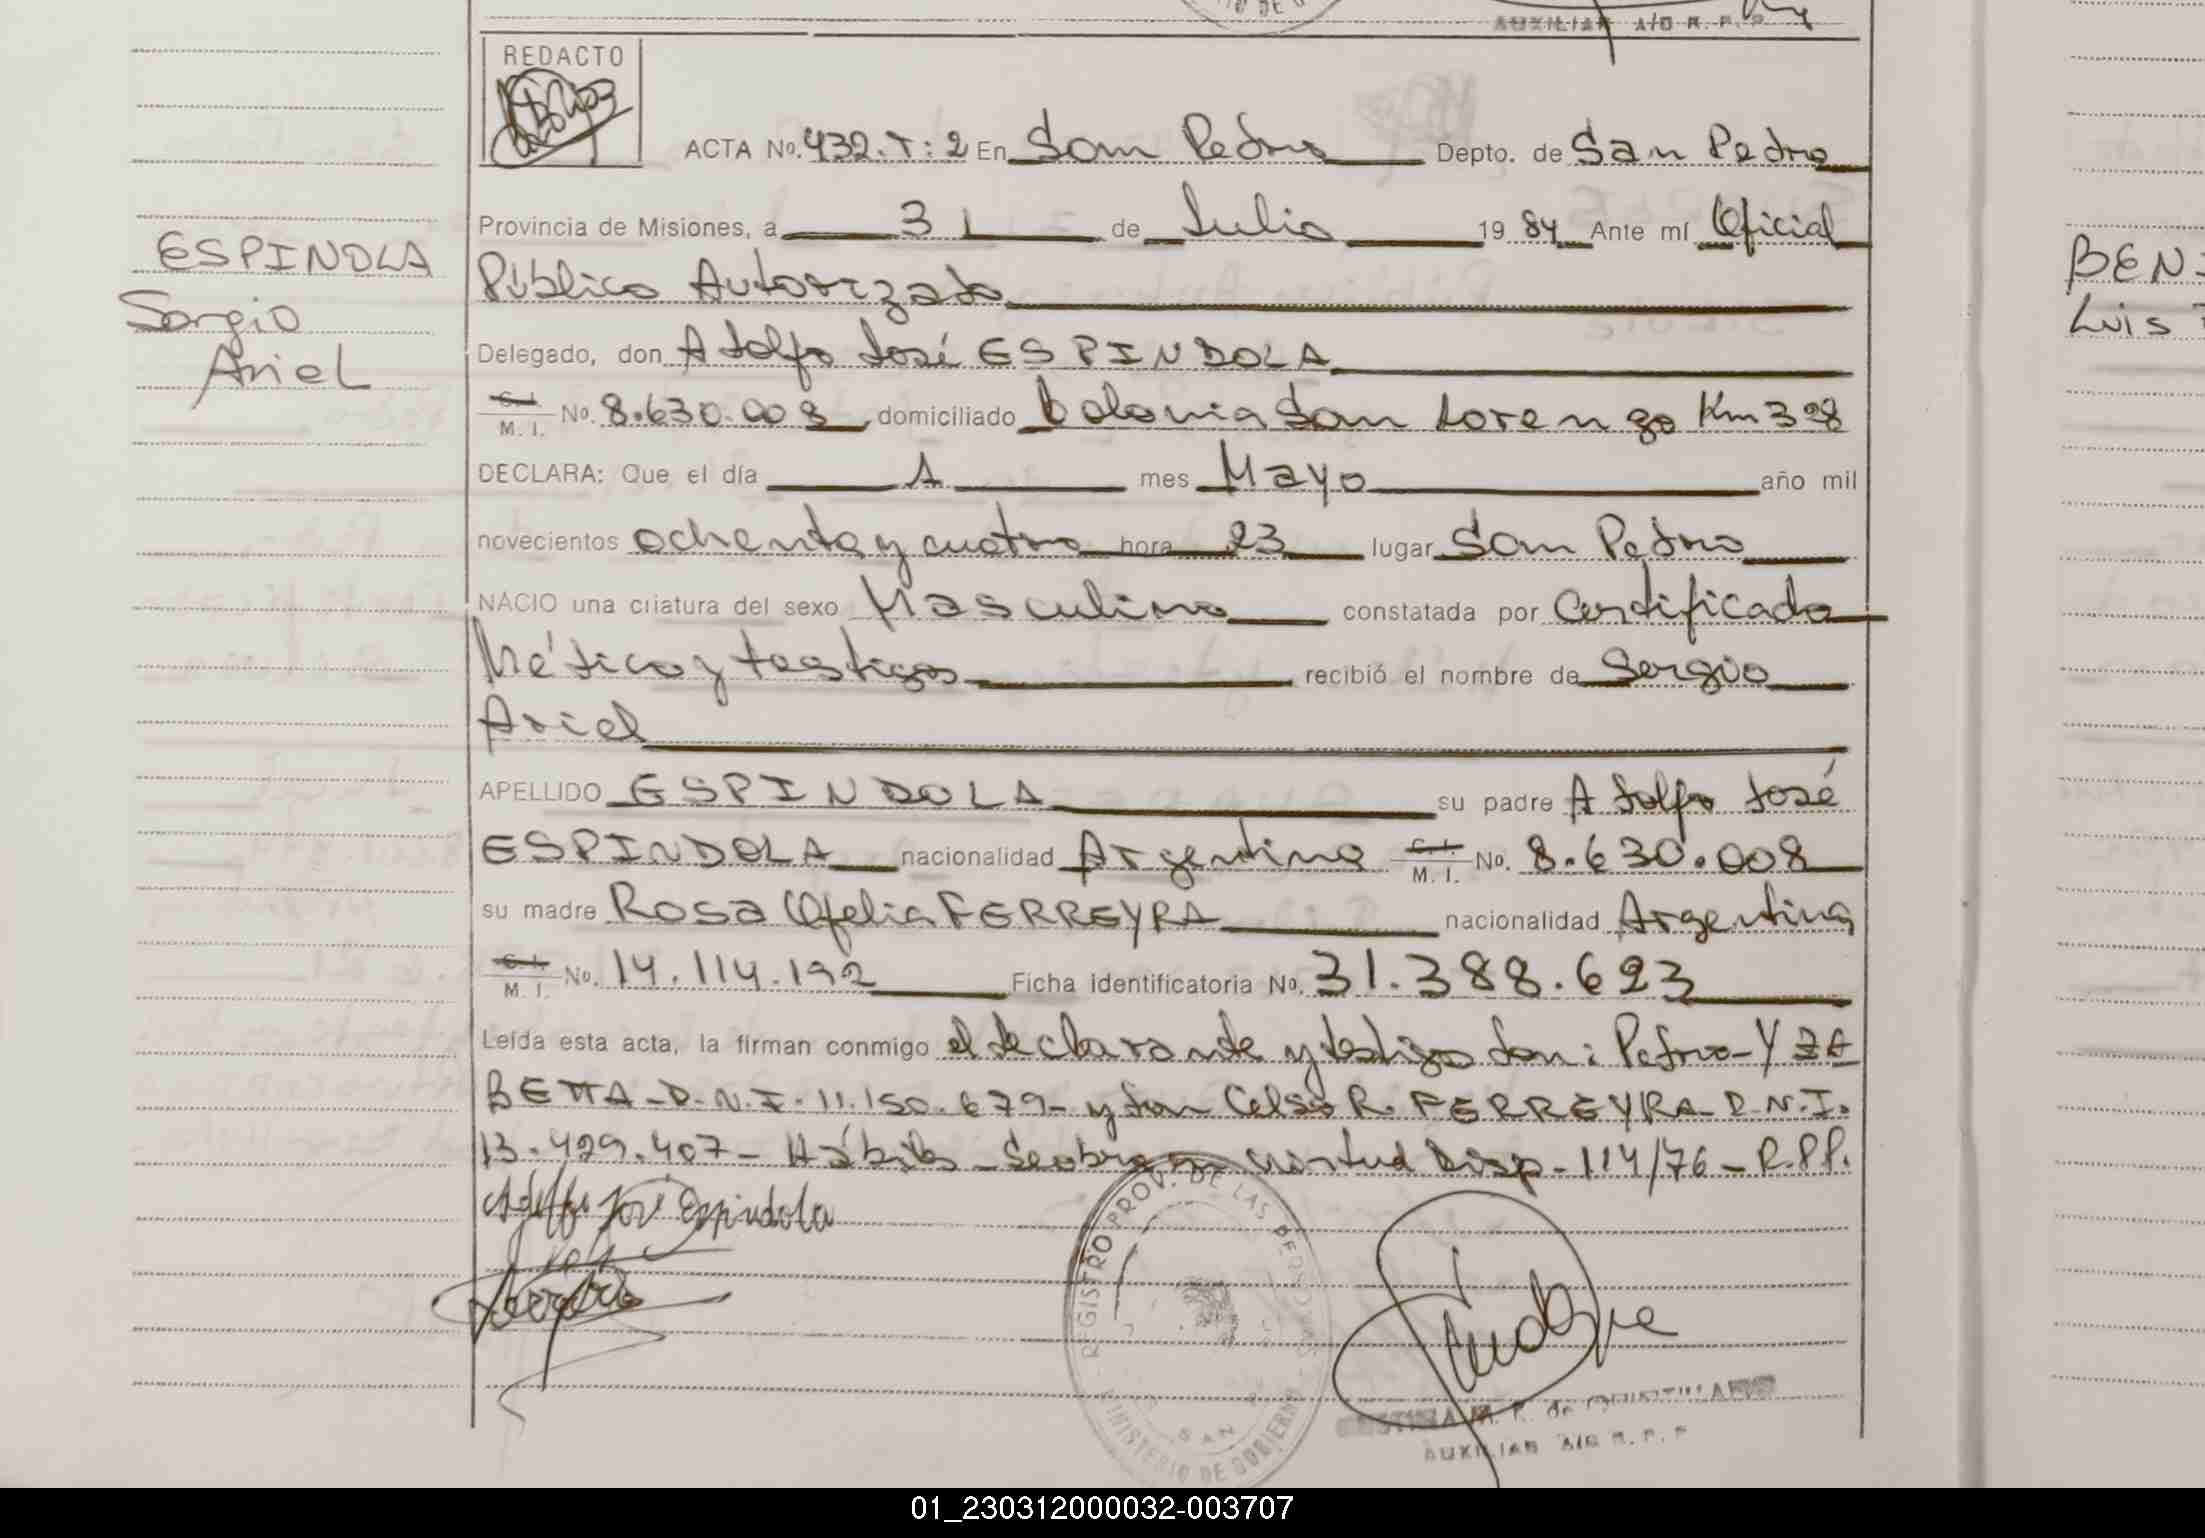 AUXILIAR A/C R. P. P.
REDACTO
ACTA No. 432. T: 2 En San Pedro Depto. de San Pedro
Provincia de Misiones, a 31 de Julio 1984 Ante mí Oficial
Público Autorizado
ESPINDOLA
Sergio
Ariel
Delegado, don Adolfo José ESPINDOLA
C. I. M. I. No. 8.630.008 domiciliado Colonia San Lorenzo Km 328
DECLARA: Que el día 1 mes Mayo año mil
novecientos ochenta y cuatro hora 23 lugar San Pedro
NACIO una criatura del sexo Masculino constatada por Certificado
Médico y testigos recibió el nombre de Sergio
Ariel
APELLIDO ESPINDOLA su padre Adolfo José
ESPINDOLA nacionalidad Argentina C. I. M. I. No. 8.630.008
su madre Rosa Ofelia FERREYRA nacionalidad Argentina
C. I. M. I. No. 14.114.192 Ficha identificatoria No. 31.388.623
Leída esta acta, la firman conmigo el declarante y testigos don: Pedro - YZA
BETTA - D.N.I. 11.150.679 - y don Celso R. FERREYRA - D.N.I.
13.429.407 - Hábiles - Se obra en virtud Disp - 114/76 - R.P.P.
Adolfo José Espindola
REGISTRO PROV. DE LAS PERSONAS
MINISTERIO DE GOBIERNO
SAN
AUXILIAR A/C R. P. P
BEN
Luis
01_230312000032-003707